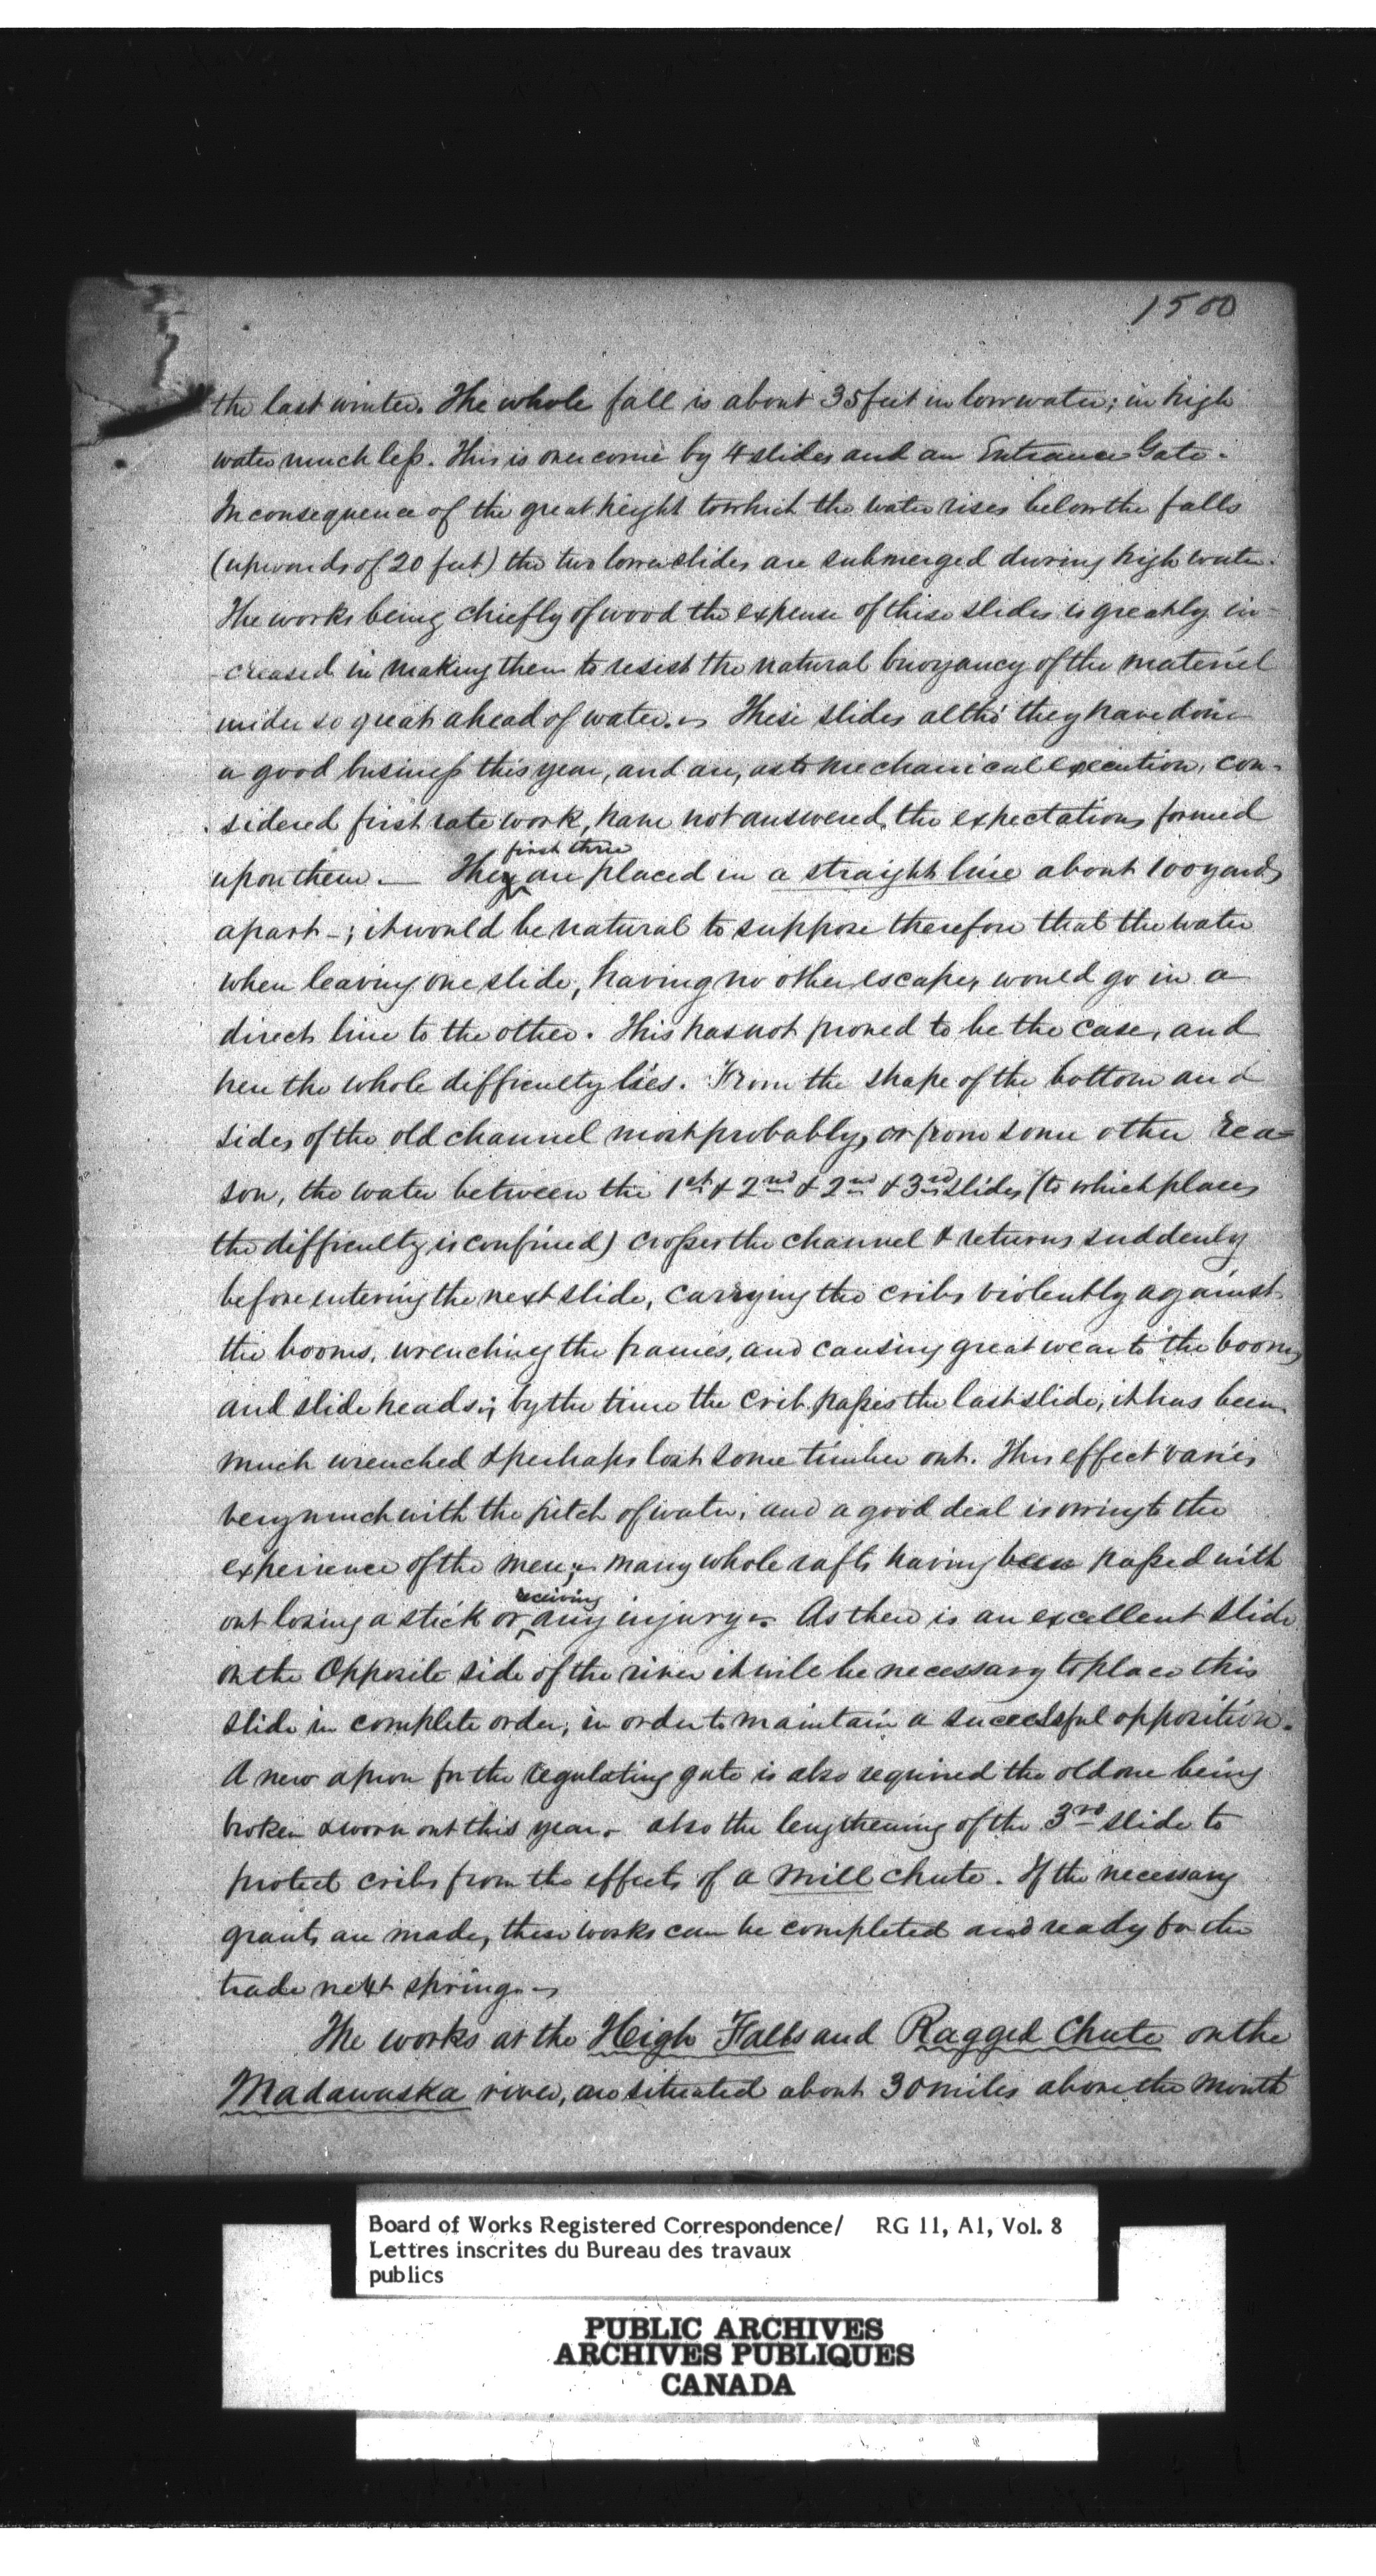 1500
the last winter. The whole fall is about 35 feet in low water; in high
water much less. This is overcome by 4 slides and an Entrance Gate.
In consequence of the great height to which the water rises below the falls
(upwards of 20 feet) the two lower slides are submerged during high water.
The works being chiefly of wood the expense of these slides is greatly in-
creased in making them to resist the natural buoyancy of the material
under so great a head of water. These slides altho' they have done
a good business this year, and are, as to mechanical execution, con-
sidered first rate work, have not answered the expectations formed
first three
upon them. — The are placed in a straight line about 100 yards
apart -; it would be natural to suppose therefore that the water
when leaving one slide, having no other escape, would go in a
direct line to the other. This has not proved to be the case, and
here the whole difficulty lies. From the shape of the bottom and
sides of the old channel most probably, or from some other rea=
son, the water between the 1st & 2nd & 2nd & 3rd slides (to which places
the difficulty is confined) crosses the channel & returns suddenly
before entering the next slide, carrying the cribs violently against
the booms, wrenching the frames, and causing great wear to the booms
and slide heads; by the time the crib passes the last slide, it has been
much wrenched & perhaps lost some timber out. This effect varies
very much with the pitch of water, and a good deal is owing to the
experience of the men; many whole rafts having been passed with
receiving
out losing a stick or any injury. As there is an excellent slide
on the Opposite side of the river it will be necessary to place this
slide in complete order, in order to maintain a successful opposition.
A new apron for the regulating gate is also required the old one being
broken & worn out this year. also the lengthening of the 3rd slide to
protect cribs from the effects of a mill chute. If the necessary
grants are made, these works can be completed and ready for the
trade next spring.
The works at the High Falls and Ragged Chute on the
Madawaska river, are situated about 30 miles above the mouth
Board of Works Registered Correspondence/ RG 11, A1, Vol. 8
Lettres inscrites du Bureau des travaux
publics
PUBLIC ARCHIVES
ARCHIVES PUBLIQUES
CANADA